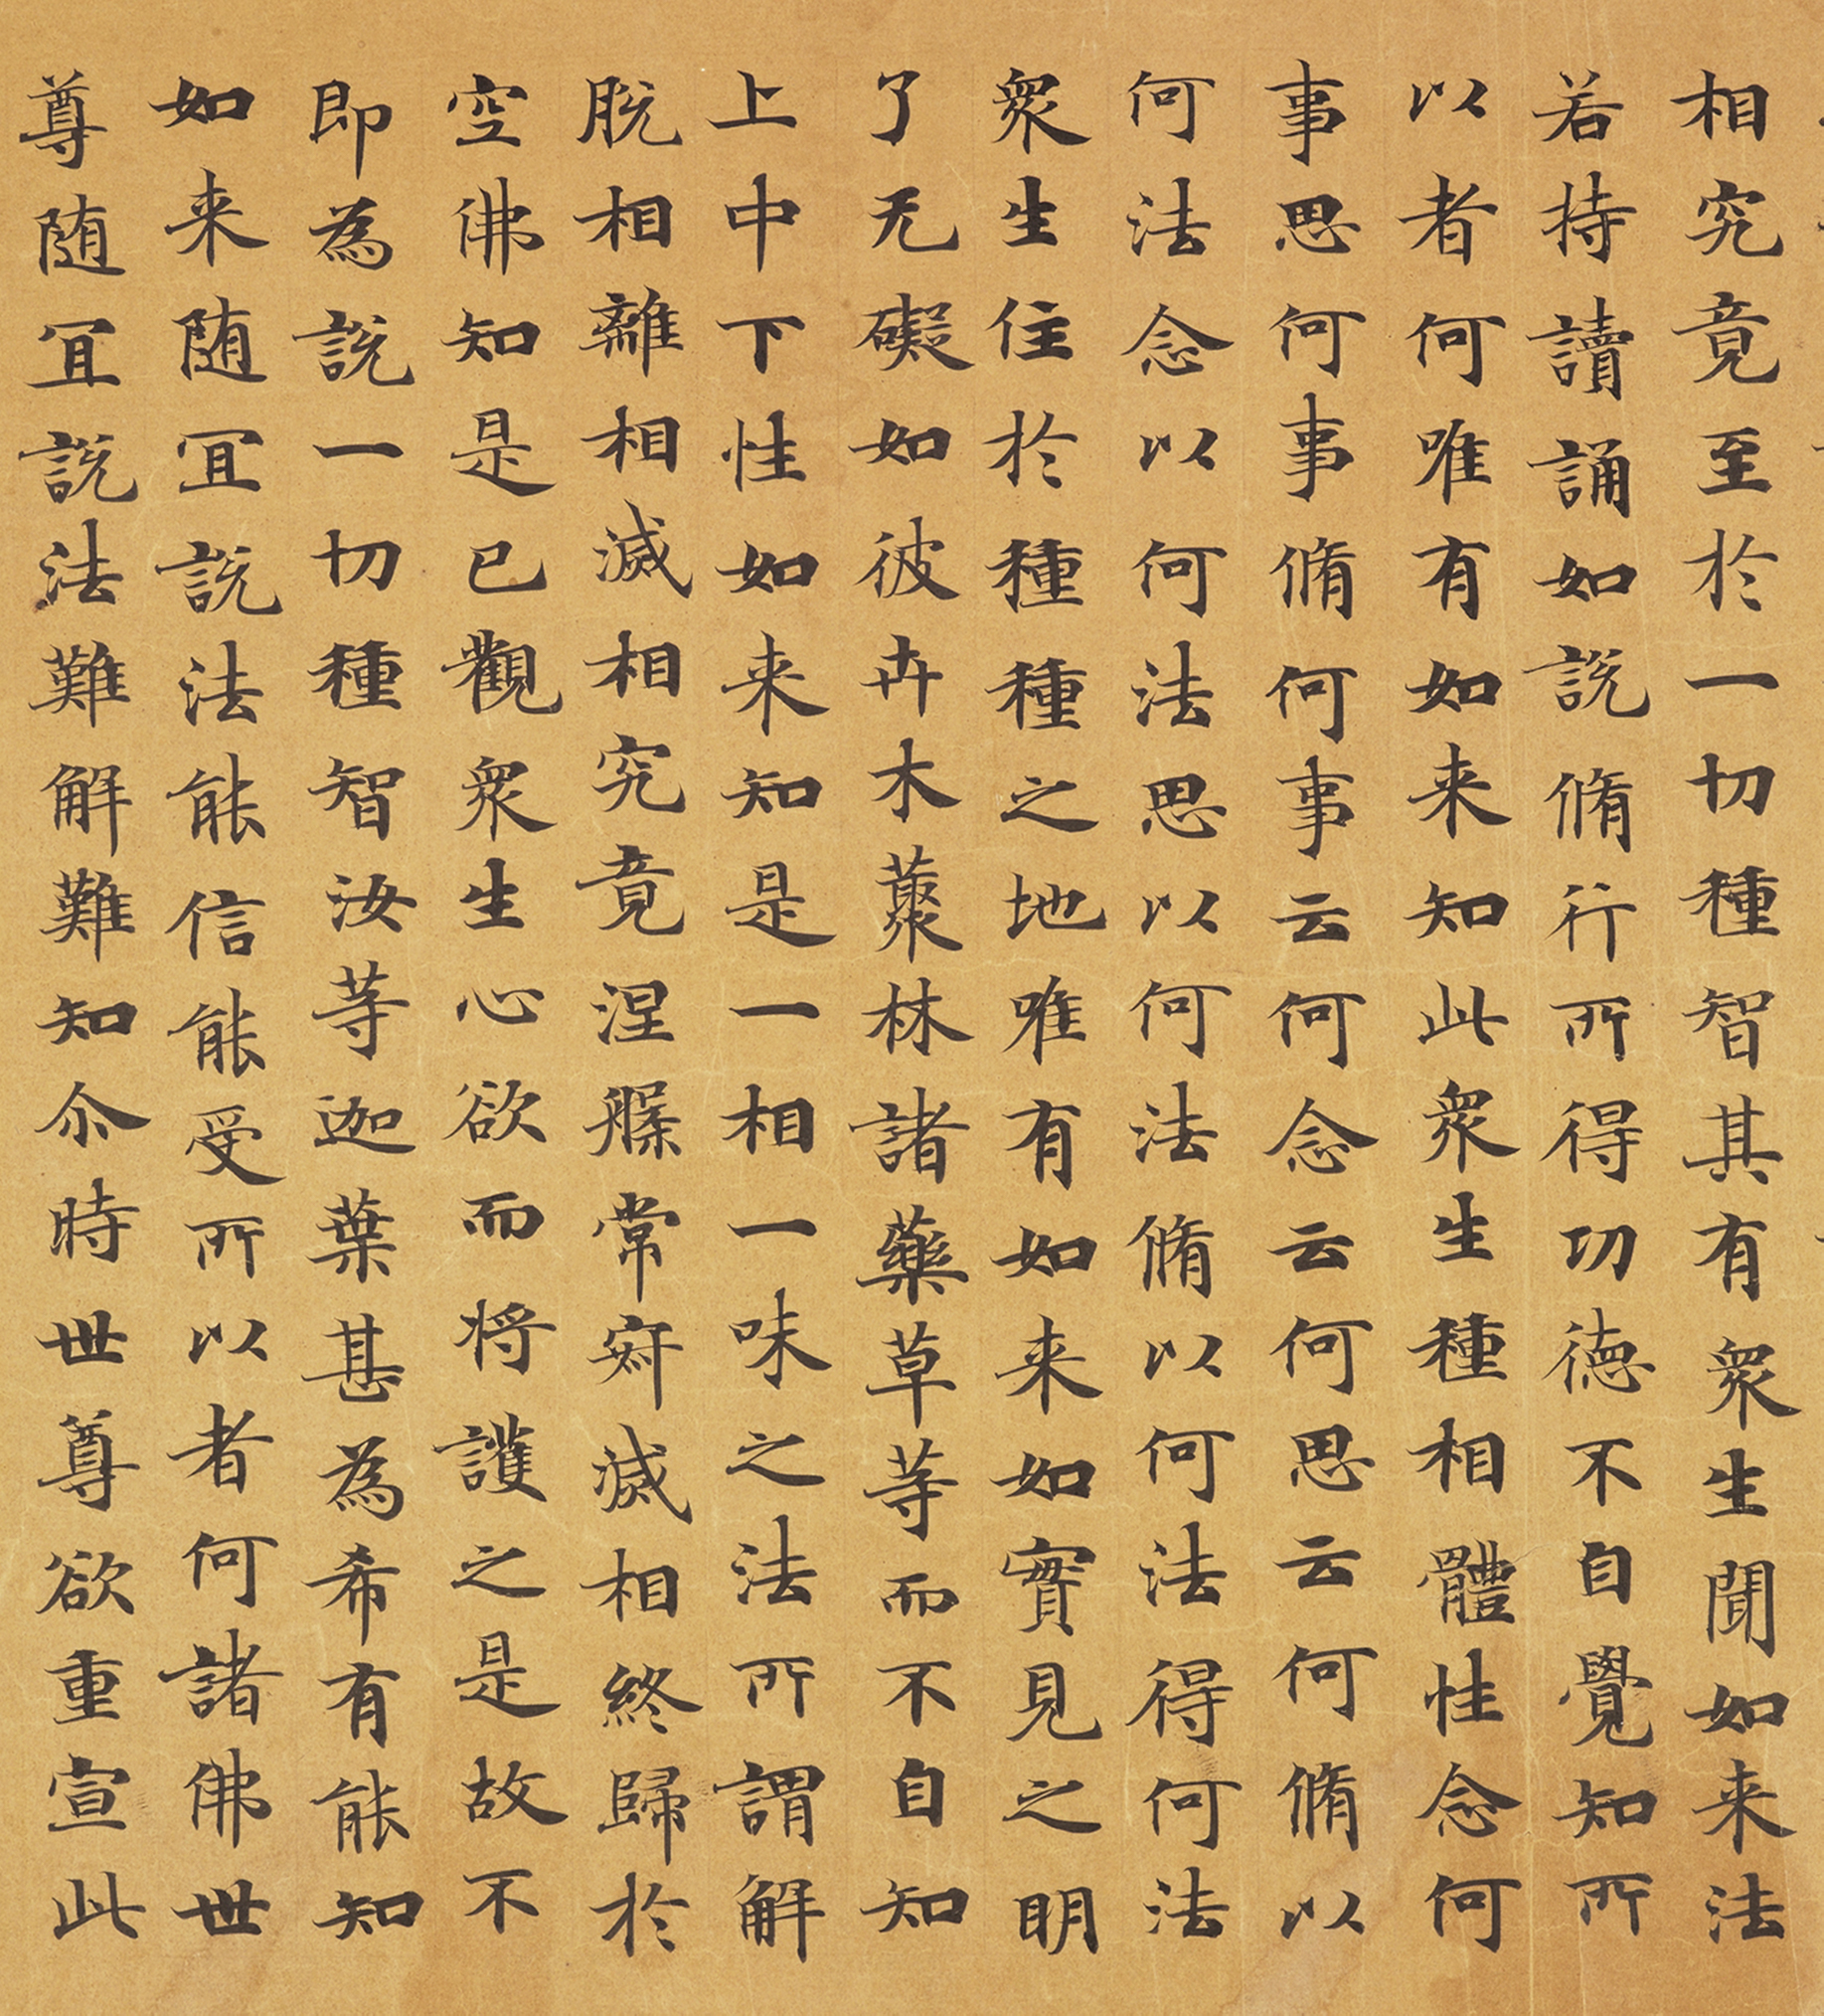 相究竟至於一切種智其有衆生聞如来法
若持讀誦如説脩行所得功德不自覺知所
以者何唯有如来知此衆生種相體性念何
事思何事脩何事云何念云何思云何脩以
何法念以何法思以何法脩以何法得何法
衆生住於種種之地唯有如来如實見之明
了无礙如彼卉木藂林諸藥草等而不自知
上中下性如来知是一相一味之法所謂解
脱相離相滅相究竟涅槃常寂滅相終歸於
空佛知是已觀衆生心欲而将護之是故不
即為説一切種智汝等迦葉甚為希有能知
如来随宜説法能信能受所以者何諸佛世
尊随宜説法難解難知尒時世尊欲重宣此